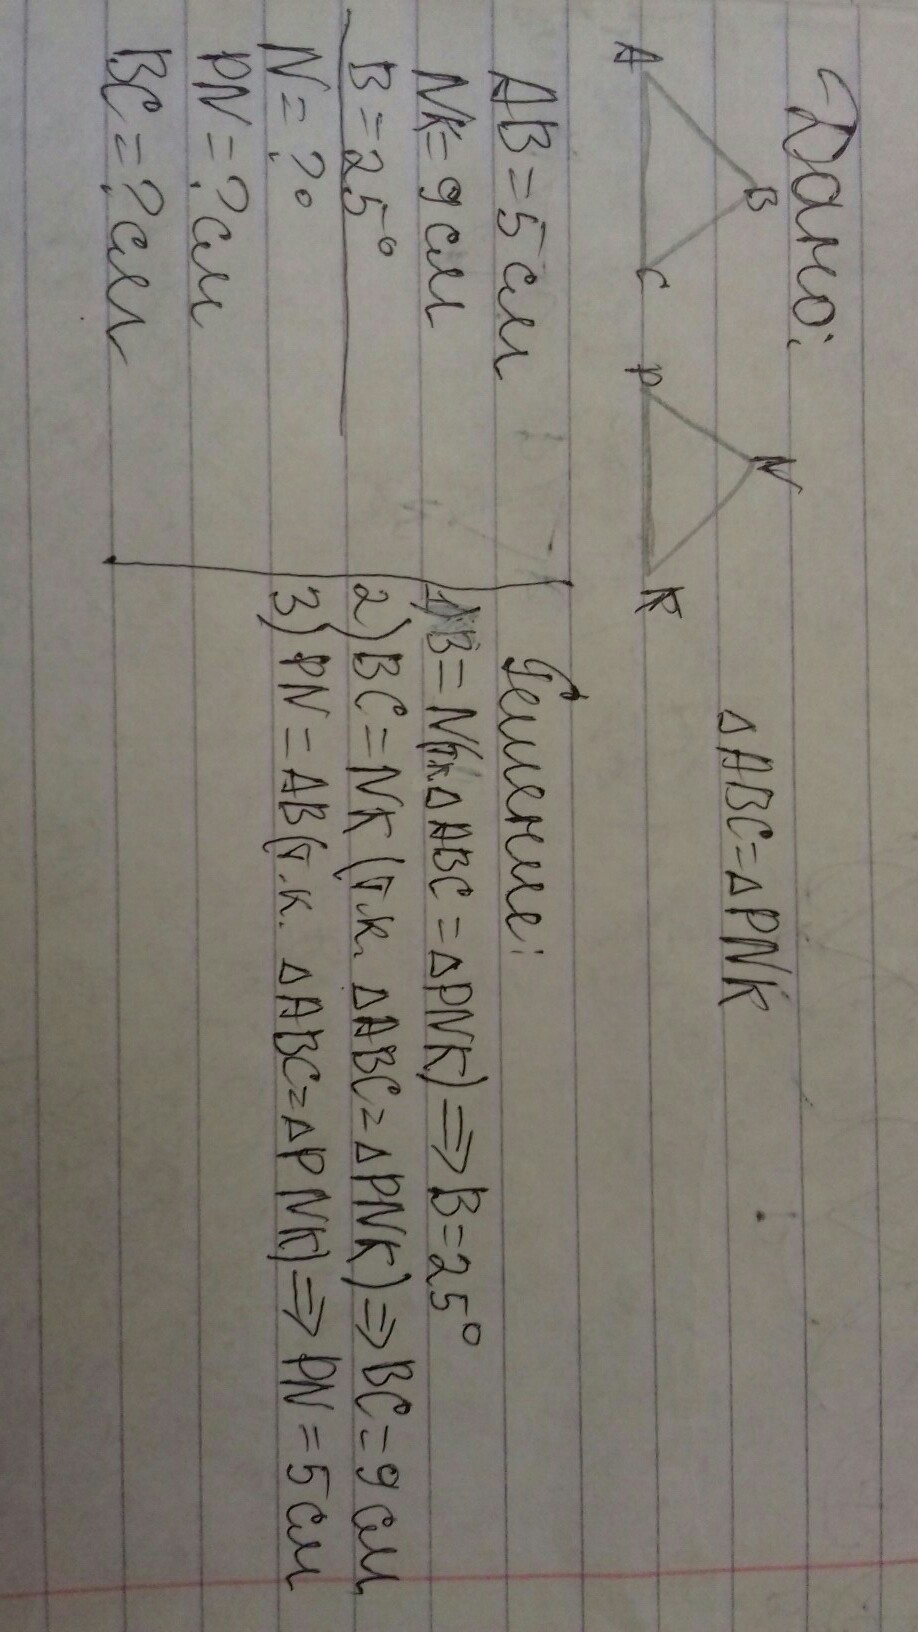 Дано:
B
N
A
C
P
K
△ABC=△PNK
AB=5 см
NK=9 см
B=25°
N=?°
PN=?см
BC=?см
Решение:
1) B=N(т.к △ABC=△PNK)⇒B=25°
2) BC=NK (т.к. △ABC=△PNK)⇒BC=9 см
3) PN=AB(т.к. △ABC=△PNK)⇒PN=5 см